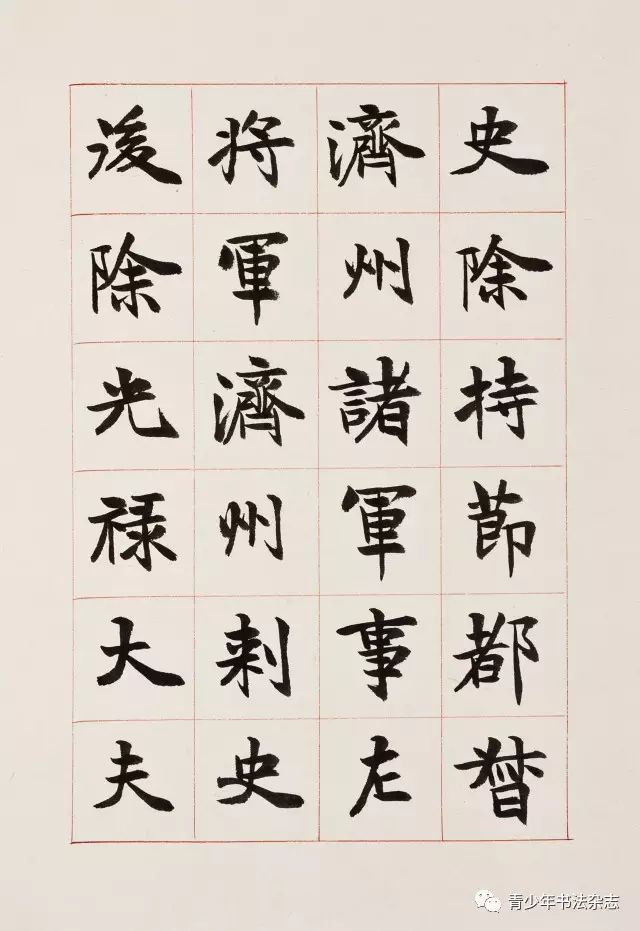 史除持莭都督
濟州諸軍事左
將軍濟州刺史
後除光禄大夫
青少年书法杂志